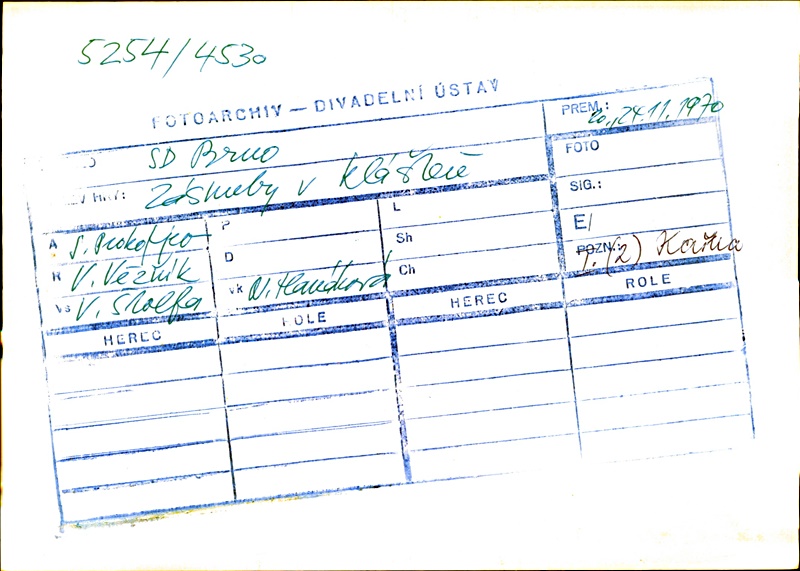 5254/4530
FOTOARCHIV — DIVADELNÍ ÚSTAV
SD Brno
PREM.: 20., 24.11.1970
HRY: Zásnuby v klášteře
FOTO
SIG.:
E/
POZN.: (2) Kařka
A S. Prokofjev
R V. Věžník
Vs V. Štolfa
P
D
vk
L
Sh
Ch
HEREC ROLE HEREC ROLE